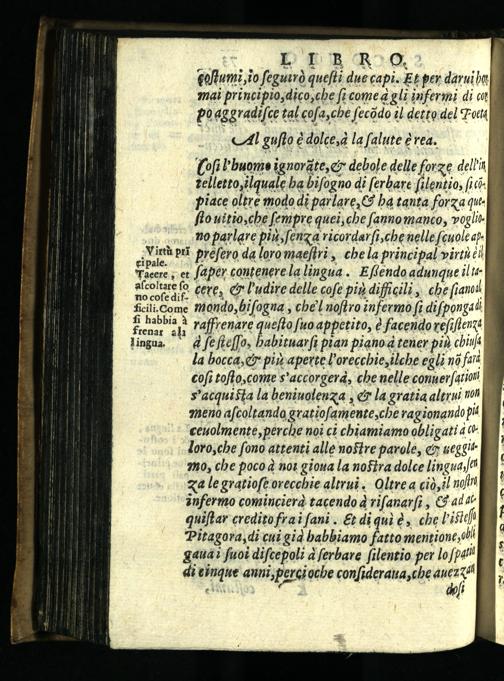 LIBRO
costumi, io seguirò questi due capi. Et per darui hor
mai principio, dico, che si come à gli infermi di cor
po aggradisce tal cosa, che secōdo il detto del Poeta
Al gusto è dolce, à la salute è rea.
Cosi l'huomo ignorāte, & debole delle forze dell'in
telletto, ilquale ha bisogno di serbare silentio, si cō-
piace oltre modo di parlare, & ha tanta forza que-
sto uitio, che sempre quei, che sanno manco, voglio-
no parlare più, senza ricordarsi, che nelle scuole ap-
presero da loro maestri, che la principal virtù è il
saper contenere la lingua. Essendo adunque il ta-
cere, & l'udire delle cose più difficili, che siano al
mondo, bisogna, che'l nostro infermo si disponga di
raffrenare questo suo appetito, è facendo resistenza
à se stesso, habituarsi pian piano à tener più chiusa
la bocca, & più aperte l'orecchie, ilche egli nō farà
cosi tosto, come s'accorgerà, che nelle conuersationi
s'acquista la beniuolenza, & la gratia altrui non
meno ascoltando gratiosamente, che ragionando pia
ceuolmente, perche noi ci chiamiamo obligati à co-
loro, che sono attenti alle nostre parole, & ueggia-
mo, che poco à noi gioua la nostra dolce lingua, sen
za le gratiose orecchie altrui. Oltre a ciò, il nostro
infermo comincierà tacendo à risanarsi, & ad ac-
quistar credito fra i sani. Et di quì è, che l'istesso
Pitagora, di cui già habbiamo fatto mentione, obli
gaua i suoi discepoli à serbare silentio per lo spatio
di cinque anni, percioche consideraua, che auezzan
dosi
Virtù pri
cipale.
Tacere, et
ascoltare so
no cose dif-
ficili. Come
si habbia à
frenar la
lingua.